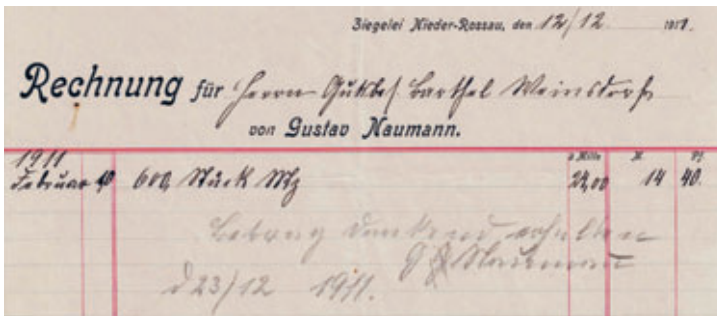 Ziegelei Nieder-Rossau, den 12/12. 1911.
Rechnung für Herrn Gutsbes. Barthel Weinsdorf
von Gustav Naumann.
à Mille M. Pf.
1911
Februar 10 600 Stück Mz 24,00 14 40.
Betrag dankend erhalten
G Naumann
d 23/12 1911.